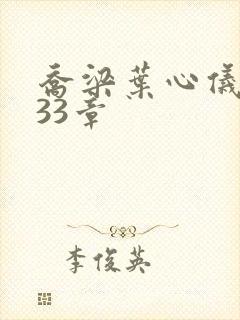 乔梁葉心儀
33章
李俊英